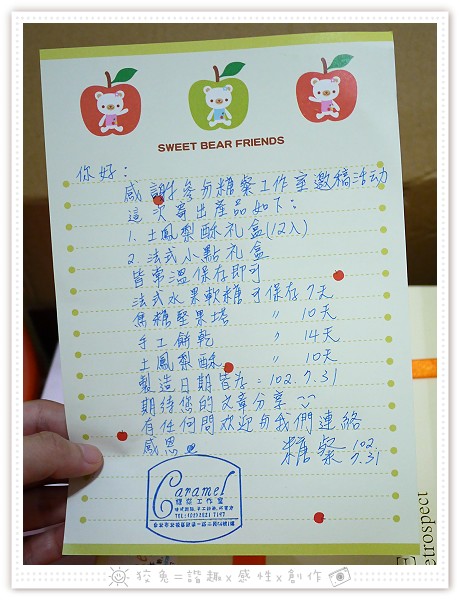 SWEET BEAR FRIENDS
你好：
感謝參與糖寀工作室邀稿活動
這次寄出產品如下：
1. 土鳳梨酥礼盒(12入)
2. 法式小點礼盒
皆常溫保存即可
法式水果軟糖可保存7天
焦糖堅果塔 〃 10天
手工餅乾 〃 14天
土鳳梨酥 〃 10天
製造日期皆在：102.7.31
期待您的文章分享
有任何問欢迎与我們連絡
感恩
糖寀 102.7.31
Caramel
糖寀工作室
etrospect
狡兔=諧趣x感性x創作